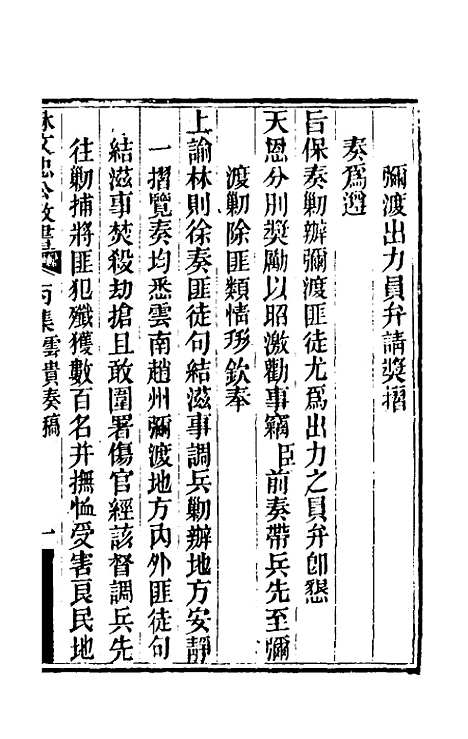 彌渡出力員弁請獎摺
奏爲遵
旨保奏勦辦彌渡匪徒尤爲出力之員弁卽懇
天恩分別獎勵以昭激勸事竊臣前奏帶兵先至彌
渡勦除匪類情形欽奉
上諭林則徐奏匪徒句結滋事調兵勦辦地方安靜
一摺覽奏均悉雲南趙州彌渡地方內外匪徒句
結滋事焚殺劫搶且敢圍署傷官經該督調兵先
往勦捕將匪犯殲獲數百名并撫恤受害良民地
林文忠公政書 丙集雲貴奏稿 一